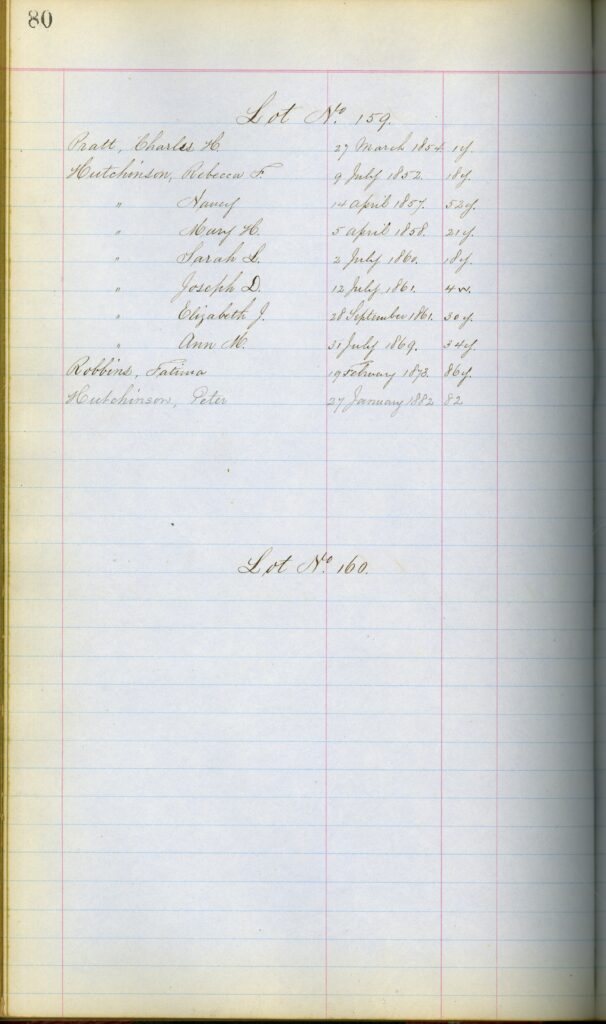 80
Lot No. 159.
Pratt, Charles H 27 March 1854 1y.
Hutchinson, Rebecca F. 9 July 1852. 18y.
" Nancy 14 April 1857. 52y.
" Mary H. 5 April 1858. 21y.
" Sarah L. 2 July 1860. 18y.
" Joseph D. 12 July 1861. 4w.
" Elizabeth J. 28 September 1861. 30y.
" Ann M. 31 July 1869. 34y.
Robbins, Fatima 19 February 1873. 86y.
Hutchinson, Peter 27 January 1882 82
Lot No. 160.